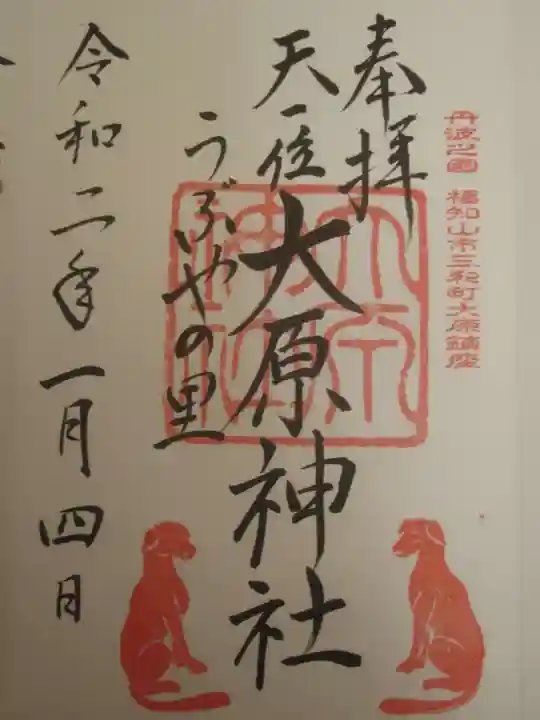 丹波之國 福知山市三和町大原鎮座
奉拝
天一位 大原神社
うぶやの里
令和二年一月四日